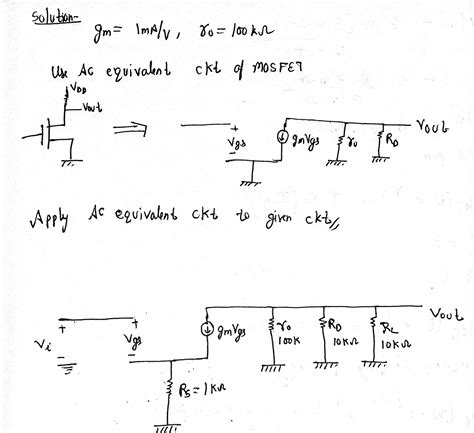 Solution-
gm = 1mA/V, ro = 100 kΩ
Use AC equivalent ckt of MOSFET
VDD
Vout
Vgs
+
-
gmVgs
ro
RD
Vout
Apply AC equivalent ckt to given ckt//
Vi
+
-
Vgs
+
-
gmVgs
ro
100K
RD
10KΩ
RL
10KΩ
Vout
RS = 1KΩ